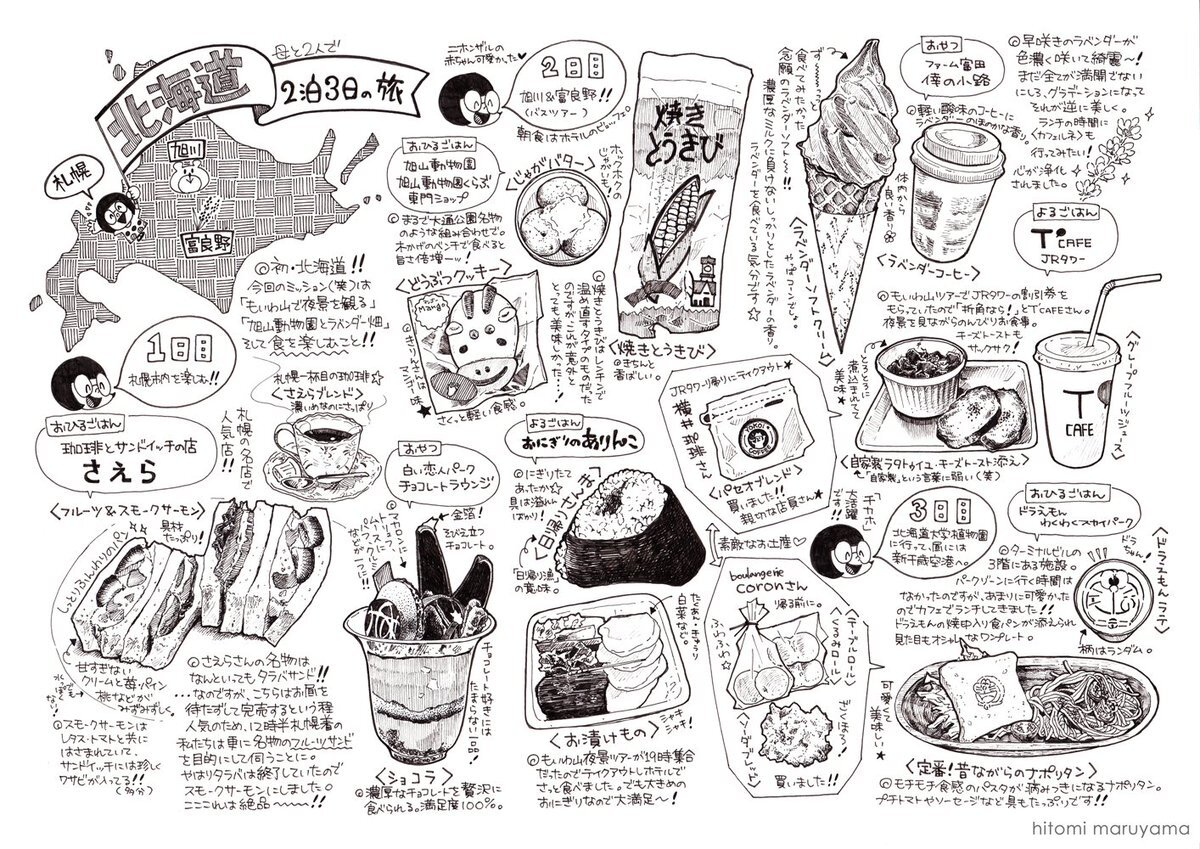 母と2人で
北海道
2泊3日の旅
旭川
札幌
富良野
◎初・北海道!!
今回のミッション(笑)は
「もいわ山で夜景を観る」
「旭山動物園とラベンダー畑」
そして食を楽しむこと!!
1日目
札幌市内を楽しむ!!
おひるごはん
珈琲とサンドイッチの店
さえら
札幌の名店で
人気店!!
札幌一杯目の珈琲☆
<さえらブレンド>
濃いめなのにさっぱり
<フルーツ&スモークサーモン>
具材
たっぷり!
しっとりふんわりパン
甘すぎない
クリームと苺パイン
桃などが
みずみずしく。
◎スモークサーモンは
レタス・トマトと共に
はさまれていて、
サンドイッチには珍しく
ワサビが入ってる!!
(多分)
◎さえらさんの名物は
なんといってもタラバサンド!!
...なのですが、こちらはお昼を
待たずして完売するという程
人気のため、12時半札幌着の
私たちは更に名物のフルーツサンド
を目的にして伺うことに。
やはりタラバは終了していたので
スモークサーモンにしました。
これは絶品〜〜〜!!
おやつ
白い恋人パーク
チョコレートラウンジ
金箔!
そびえ立つ
チョコレート。
チョコレート好きには
たまらない一品!
<ショコラ>
◎濃厚なチョコレートを贅沢に
食べられる。満足度100%。
よるごはん
おにぎりのありんこ
◎にぎりたて
あったか☆
具は溢れん
ばかり!
「日帰り漁」
の意味。
たくあん・きゅうり
白菜など。
シャキ
シャキ!
<お漬けもの>
◎もいわ山夜景ツアーが19時集合
だったのでテイクアウトしホテルで
さっと食べました。でも大きめの
おにぎりなので大満足〜!
2日目
旭川&富良野!!
(バスツアー)
ニホンザルの
赤ちゃん可愛かった♥
朝食はホテルのビュッフェ。
おひるごはん
旭山動物園
旭山動物園くらぶ
東門ショップ
◎まるで大通公園名物
のような組み合わせで。
木かげのベンチで食べると
旨さ倍増ー!
<じゃがバター>
ホックホクの
じゃがいも。
<どうぶつクッキー>
Mango
◎きりんさんは
マンゴー味
さくっと軽い食感。
焼き
とうきび
◎焼きとうきびはレンチンで
温め直すタイプのものだった
のですが、これが意外と
とっても美味しかった…!
<焼きとうきび>
◎きちんと
香ばしい。
ずーーーっと
食べてみたかった
念願のラベンダーソフト〜!!
濃厚なミルクに負けないしっかりとしたラベンダーの香り。
ラベンダーを食べている気分です☆
<ラベンダーソフトクリーム>
やっぱコーンでしょ。
おやつ
ファーム富田
倖の小路
◎軽い酸味のコーヒーに
ラベンダーのほのかな香り。
体内から
良い香り
<ラベンダーコーヒー>
◎早咲きのラベンダーが
色濃く咲いて綺麗〜!
まだ全てが満開でない
にしろ、グラデーションになって
それが逆に美しく。
ランチの時間に
(カフェルネ)も
行ってみたい!
心が浄化
されました。
よるごはん
T'CAFE
JRタワー
◎もいわ山ツアーでJRタワーの割引券を
もらっていたので「折角なら!」とT'CAFEさん。
夜景を見ながらのんびりお食事。
チーズトーストも
サックサク!
とろとろに
煮込まれてて
美味★
T
CAFE
<グレープフルーツジュース>
<自家製ラタトゥイユ・チーズトースト添え>
「自家製」という言葉に弱い(笑)
JRタワー帰りにテイクアウト
横井珈琲さん
YOKOI
COFFEE
<パセオブレンド>
買いました!!
親切な店員さん
素敵なお土産♡
boulangerie
coronさん
帰る前に。
ふわふわ☆
<テーブルロール>
<くるみロール>
ざくほろ!
買いました!
3日目
北海道大学植物園
に行って、昼には
新千歳空港へ。
おひるごはん
ドラえもん
わくわくスカイパーク
◎ターミナルビルの
3階にある施設。
パークゾーンに行く時間は
なかったのですが、あまりに可愛かった
のでカフェでランチしてきました!!
ドラえもんの焼印入り食パンが添えられ
見た目オシャレなワンプレート。
ドラ
ちゃん!
<ドラえもんラテ>
柄はランダム。
可愛くて
美味しい★
<定番!昔ながらのナポリタン>
◎モチモチ食感のパスタが病みつきになるナポリタン。
プチトマトやソーセージなど具もたっぷりです!!
hitomi maruyama